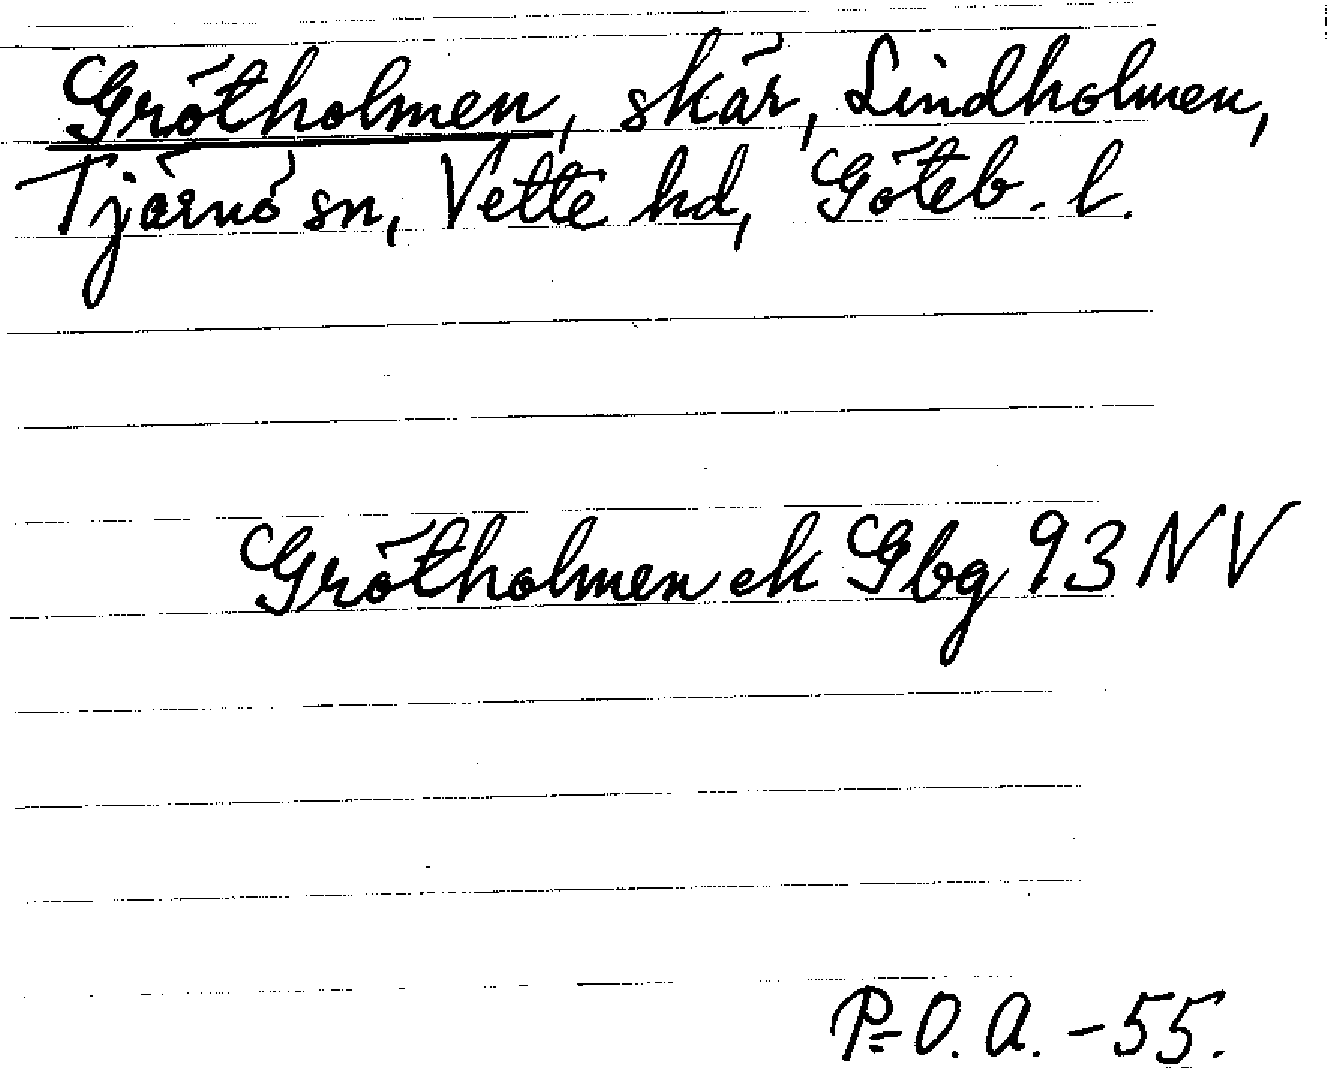 Grötholmen, skär, Lindholmen,
Tjärnö sn, Vette hd, Göteb. l.
Grötholmen ek Gbg 93 NV
P-O. A. -55.